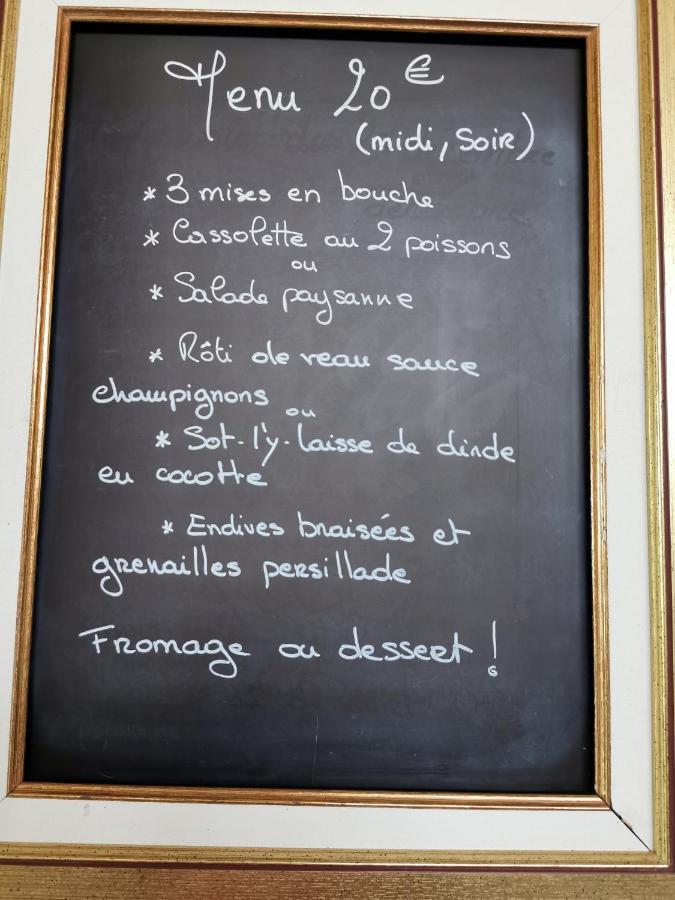 Menu 20€
(midi, Soir)
* 3 mises en bouche
* Cassolette au 2 poissons
ou
* Salade paysanne
* Rôti de veau sauce
champignons
ou
* Sot-l'y-laisse de dinde
en cocotte
* Endives braisées et
grenailles persillade
Fromage ou dessert !